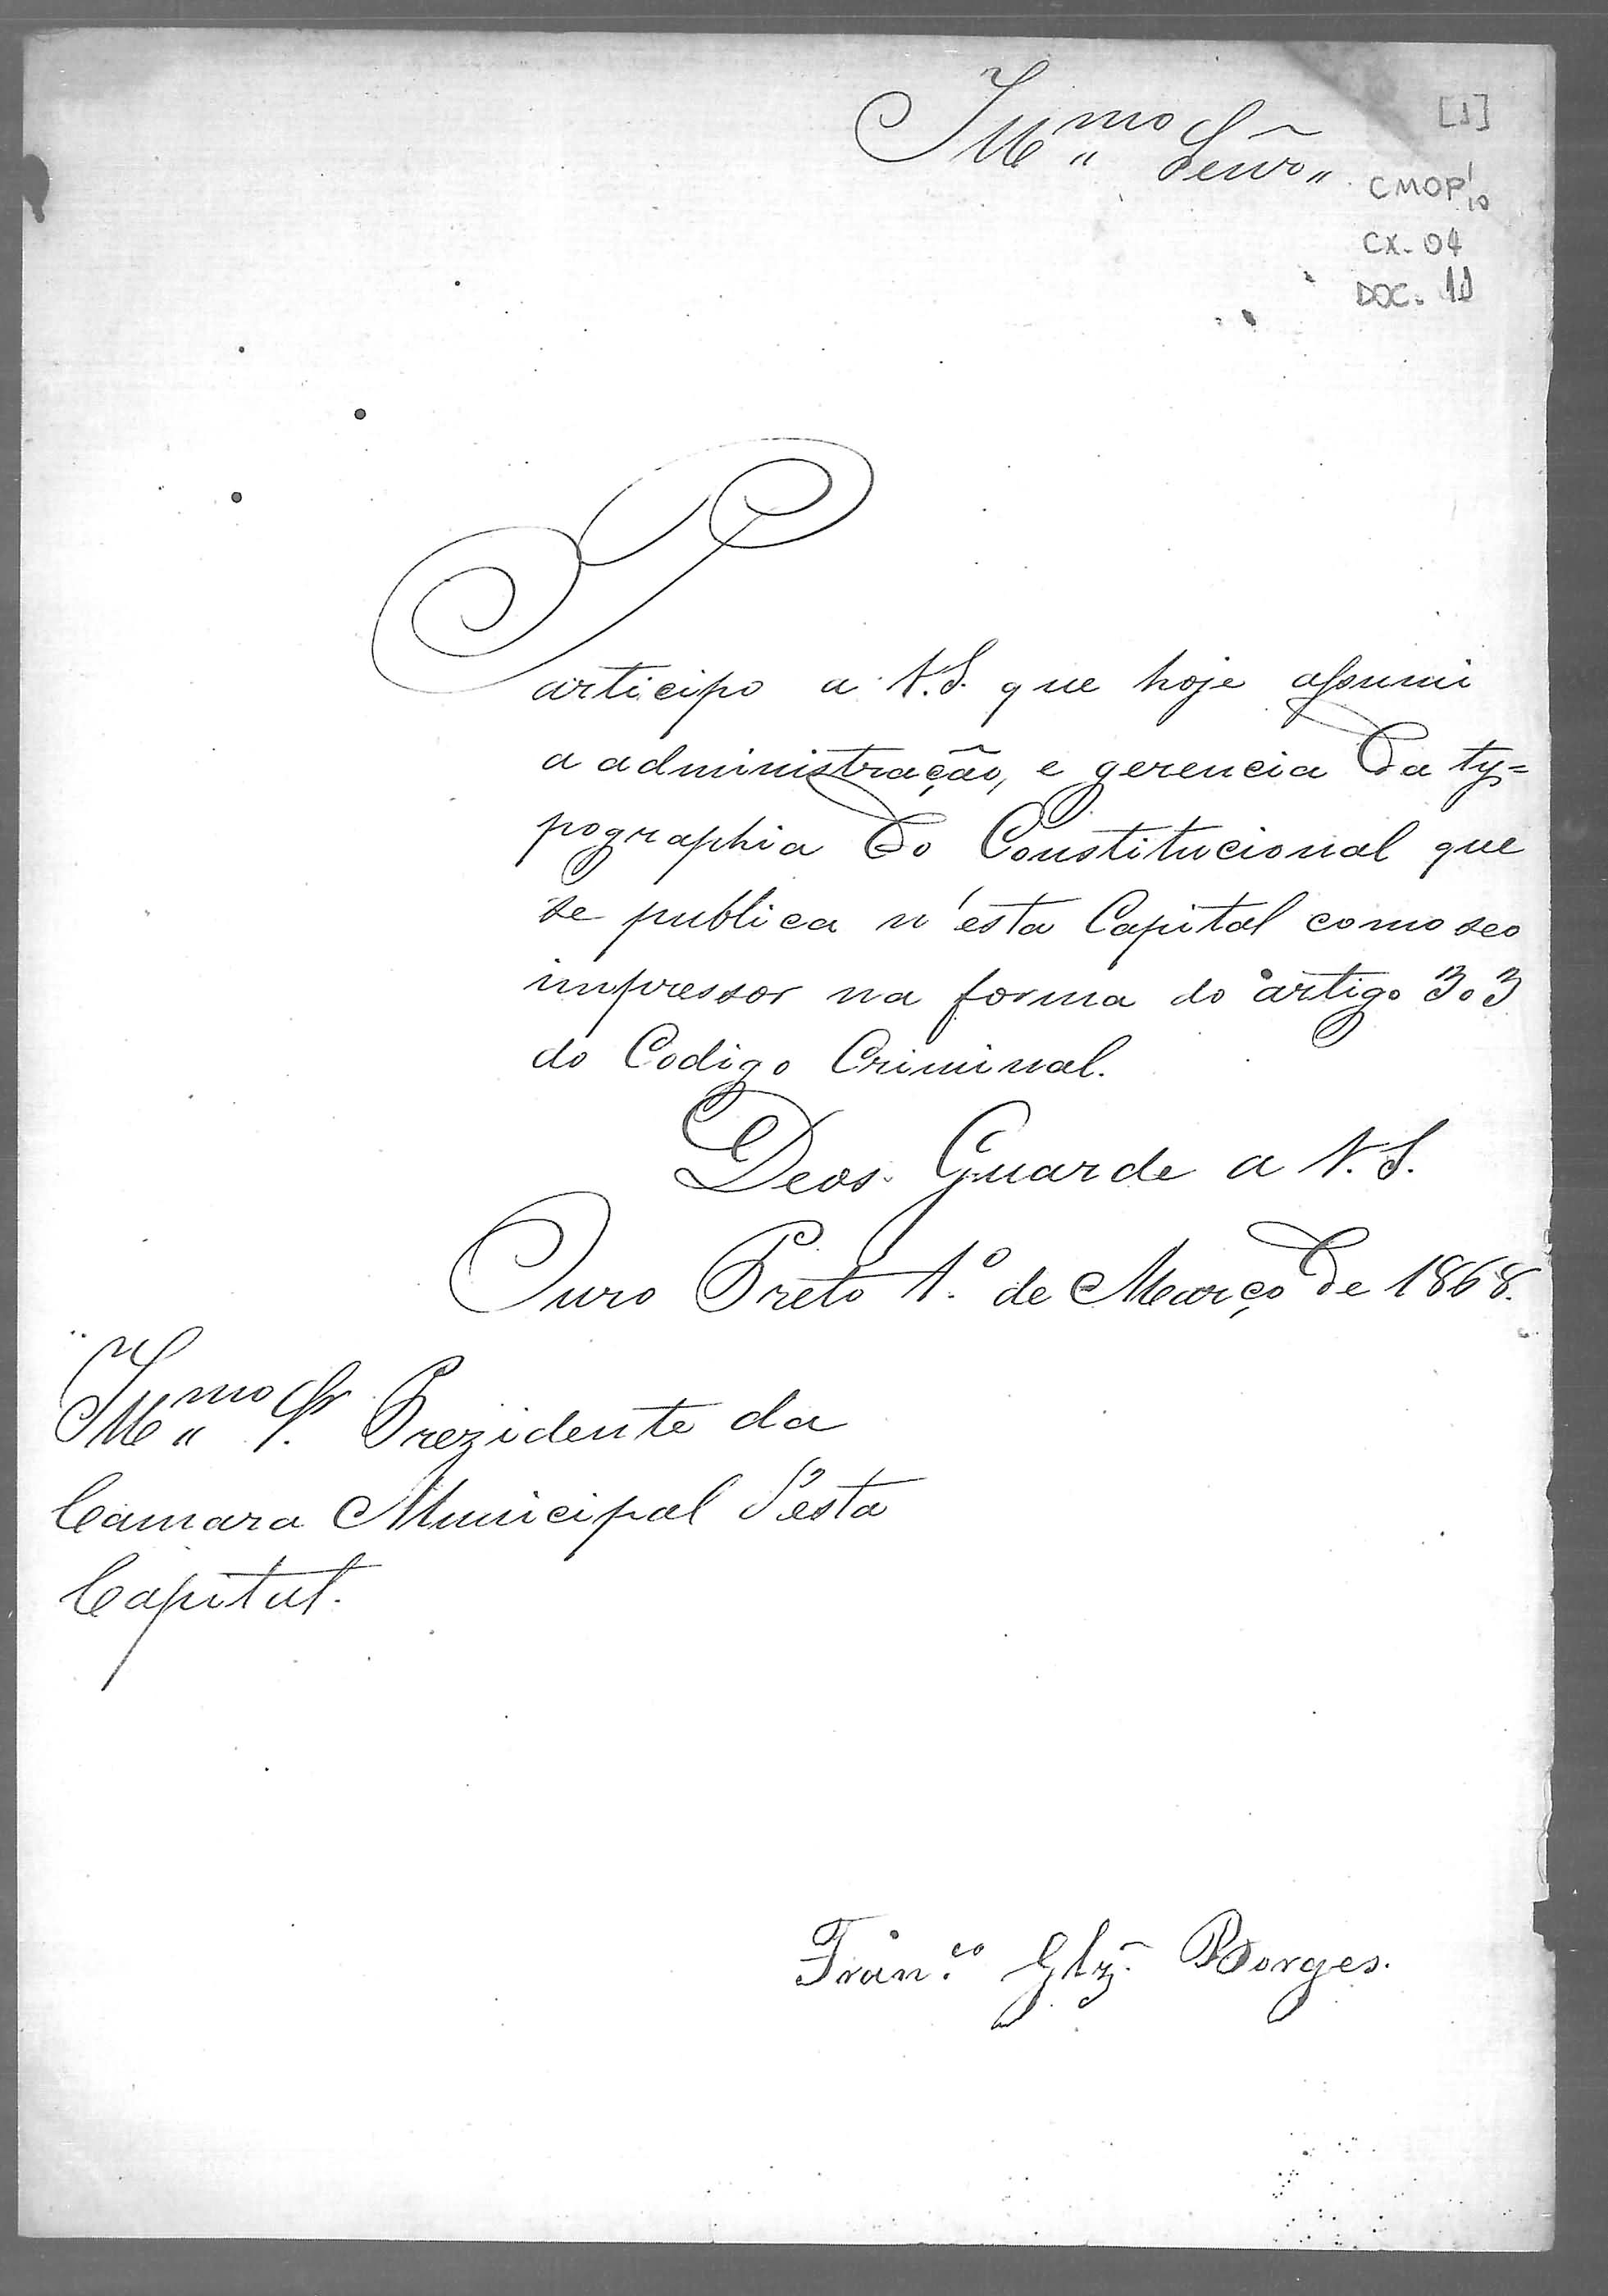 Illmo Senr
[1]
CMOP 1/10
CX. 04
DOC. 11
Participo a V.S. que hoje assumi
a administração, e gerencia da ty=
pographia do Constitucional que
se publica n'esta Capital como seo
impressor na forma do artigo 303
do Codigo Criminal.
Deos Guarde a V.S.
Ouro Preto 1.º de Março de 1868.
Illmo Sr. Prezidente da
Camara Municipal d'esta
Capital.
Fran.co Glz. Borges.